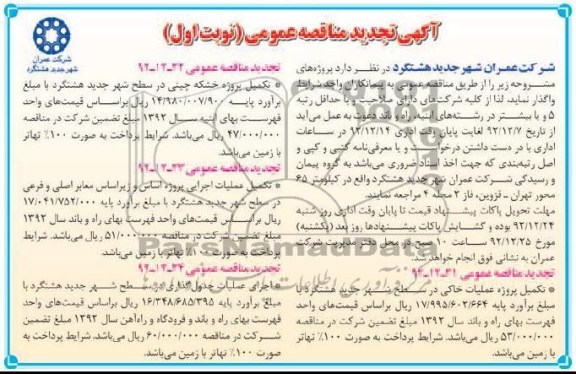 آگهی تجدید مناقصه عمومی (نوبت اول)
شرکت عمران
شهر جدید هشتگرد
شرکت عمران شهر جدید هشتگرد در نظر دارد پروژه‌های
مشروحه زیر را از طریق مناقصه عمومی به پیمانکاران واجد شرایط
واگذار نماید، لذا از کلیه شرکت‌های دارای صلاحیت و با حداقل رتبه
۵ و یا بیشتر در رشته‌های ابنیه، راه و باند دعوت به عمل می‌آید
از تاریخ ۹۲/۱۲/۷ لغایت پایان وقت اداری ۹۲/۱۲/۱۴ در ساعات
اداری با در دست داشتن درخواست و یا معرفی‌نامه کتبی و کپی و
اصل رتبه‌بندی که جهت اخذ اسناد ضروری می‌باشد به گروه پیمان
و رسیدگی شرکت عمران شهر جدید هشتگرد واقع در کیلومتر ۶۵
محور تهران ـ قزوین، فاز ۲ محله ۴ مراجعه نمایند.
مهلت تحویل پاکات پیشنهاد قیمت تا پایان وقت اداری روز شنبه
۹۲/۱۲/۲۴ بوده و گشایش پاکات پیشنهادها روز بعد (یکشنبه)
مورخ ۹۲/۱۲/۲۵ ساعت ۱۰ صبح در محل دفتر مدیریت شرکت
عمران به نشانی فوق انجام خواهد شد.
تجدید مناقصه عمومی ۳۱ـ۱۲ـ۹۲
* تکمیل پروژه عملیات خاکی در سطح شهر جدید هشتگرد با
مبلغ برآورد پایه ۱۷/۹۹۵/۶۰۲/۶۶۴ ریال براساس قیمت‌های واحد
فهرست بهای راه و باند سال ۱۳۹۲ مبلغ تضمین شرکت در مناقصه
۵۳/۰۰۰/۰۰۰ ریال می‌باشد. شرایط پرداخت به
صورت ۱۰۰٪ تهاتر با زمین می‌باشد.
تجدید مناقصه عمومی ۳۲ـ۱۲ـ۹۲
* تکمیل پروژه خشکه چینی در سطح شهر جدید هشتگرد با مبلغ
برآورد پایه ۱۴/۹۸۰/۰۰۷/۹۰۰ ریال براساس قیمت‌های واحد
فهرست بهای ابنیه سال ۱۳۹۲ مبلغ تضمین شرکت در مناقصه
۴۷/۰۰۰/۰۰۰ ریال می‌باشد. شرایط پرداخت به صورت ۱۰۰٪ تهاتر
با زمین می‌باشد.
تجدید مناقصه عمومی ۳۳ـ۱۲ـ۹۲
* تکمیل عملیات اجرایی پروژه اساس و زیراساس معابر اصلی و فرعی
در سطح شهر جدید هشتگرد با مبلغ برآورد پایه ۱۷/۰۴۱/۷۵۲/۰۰۰
ریال براساس قیمت‌های واحد فهرست بهای راه و باند سال ۱۳۹۲
مبلغ تضمین شرکت در مناقصه ۵۱/۰۰۰/۰۰۰ ریال می‌باشد. شرایط
پرداخت به صورت ۱۰۰٪ تهاتر با زمین می‌باشد.
تجدید مناقصه عمومی ۳۴ـ۱۲ـ۹۲
* اجرای عملیات جدول‌گذاری در سطح شهر جدید هشتگرد با
مبلغ برآورد پایه ۱۶/۳۴۸/۶۸۵/۳۹۵ ریال براساس قیمت‌های واحد
فهرست بهای راه و باند و فرودگاه و راه‌آهن سال ۱۳۹۲ مبلغ تضمین
شرکت در مناقصه ۶۰/۰۰۰/۰۰۰ ریال می‌باشد. شرایط پرداخت به
صورت ۱۰۰٪ تهاتر با زمین می‌باشد.
ParsNamadData